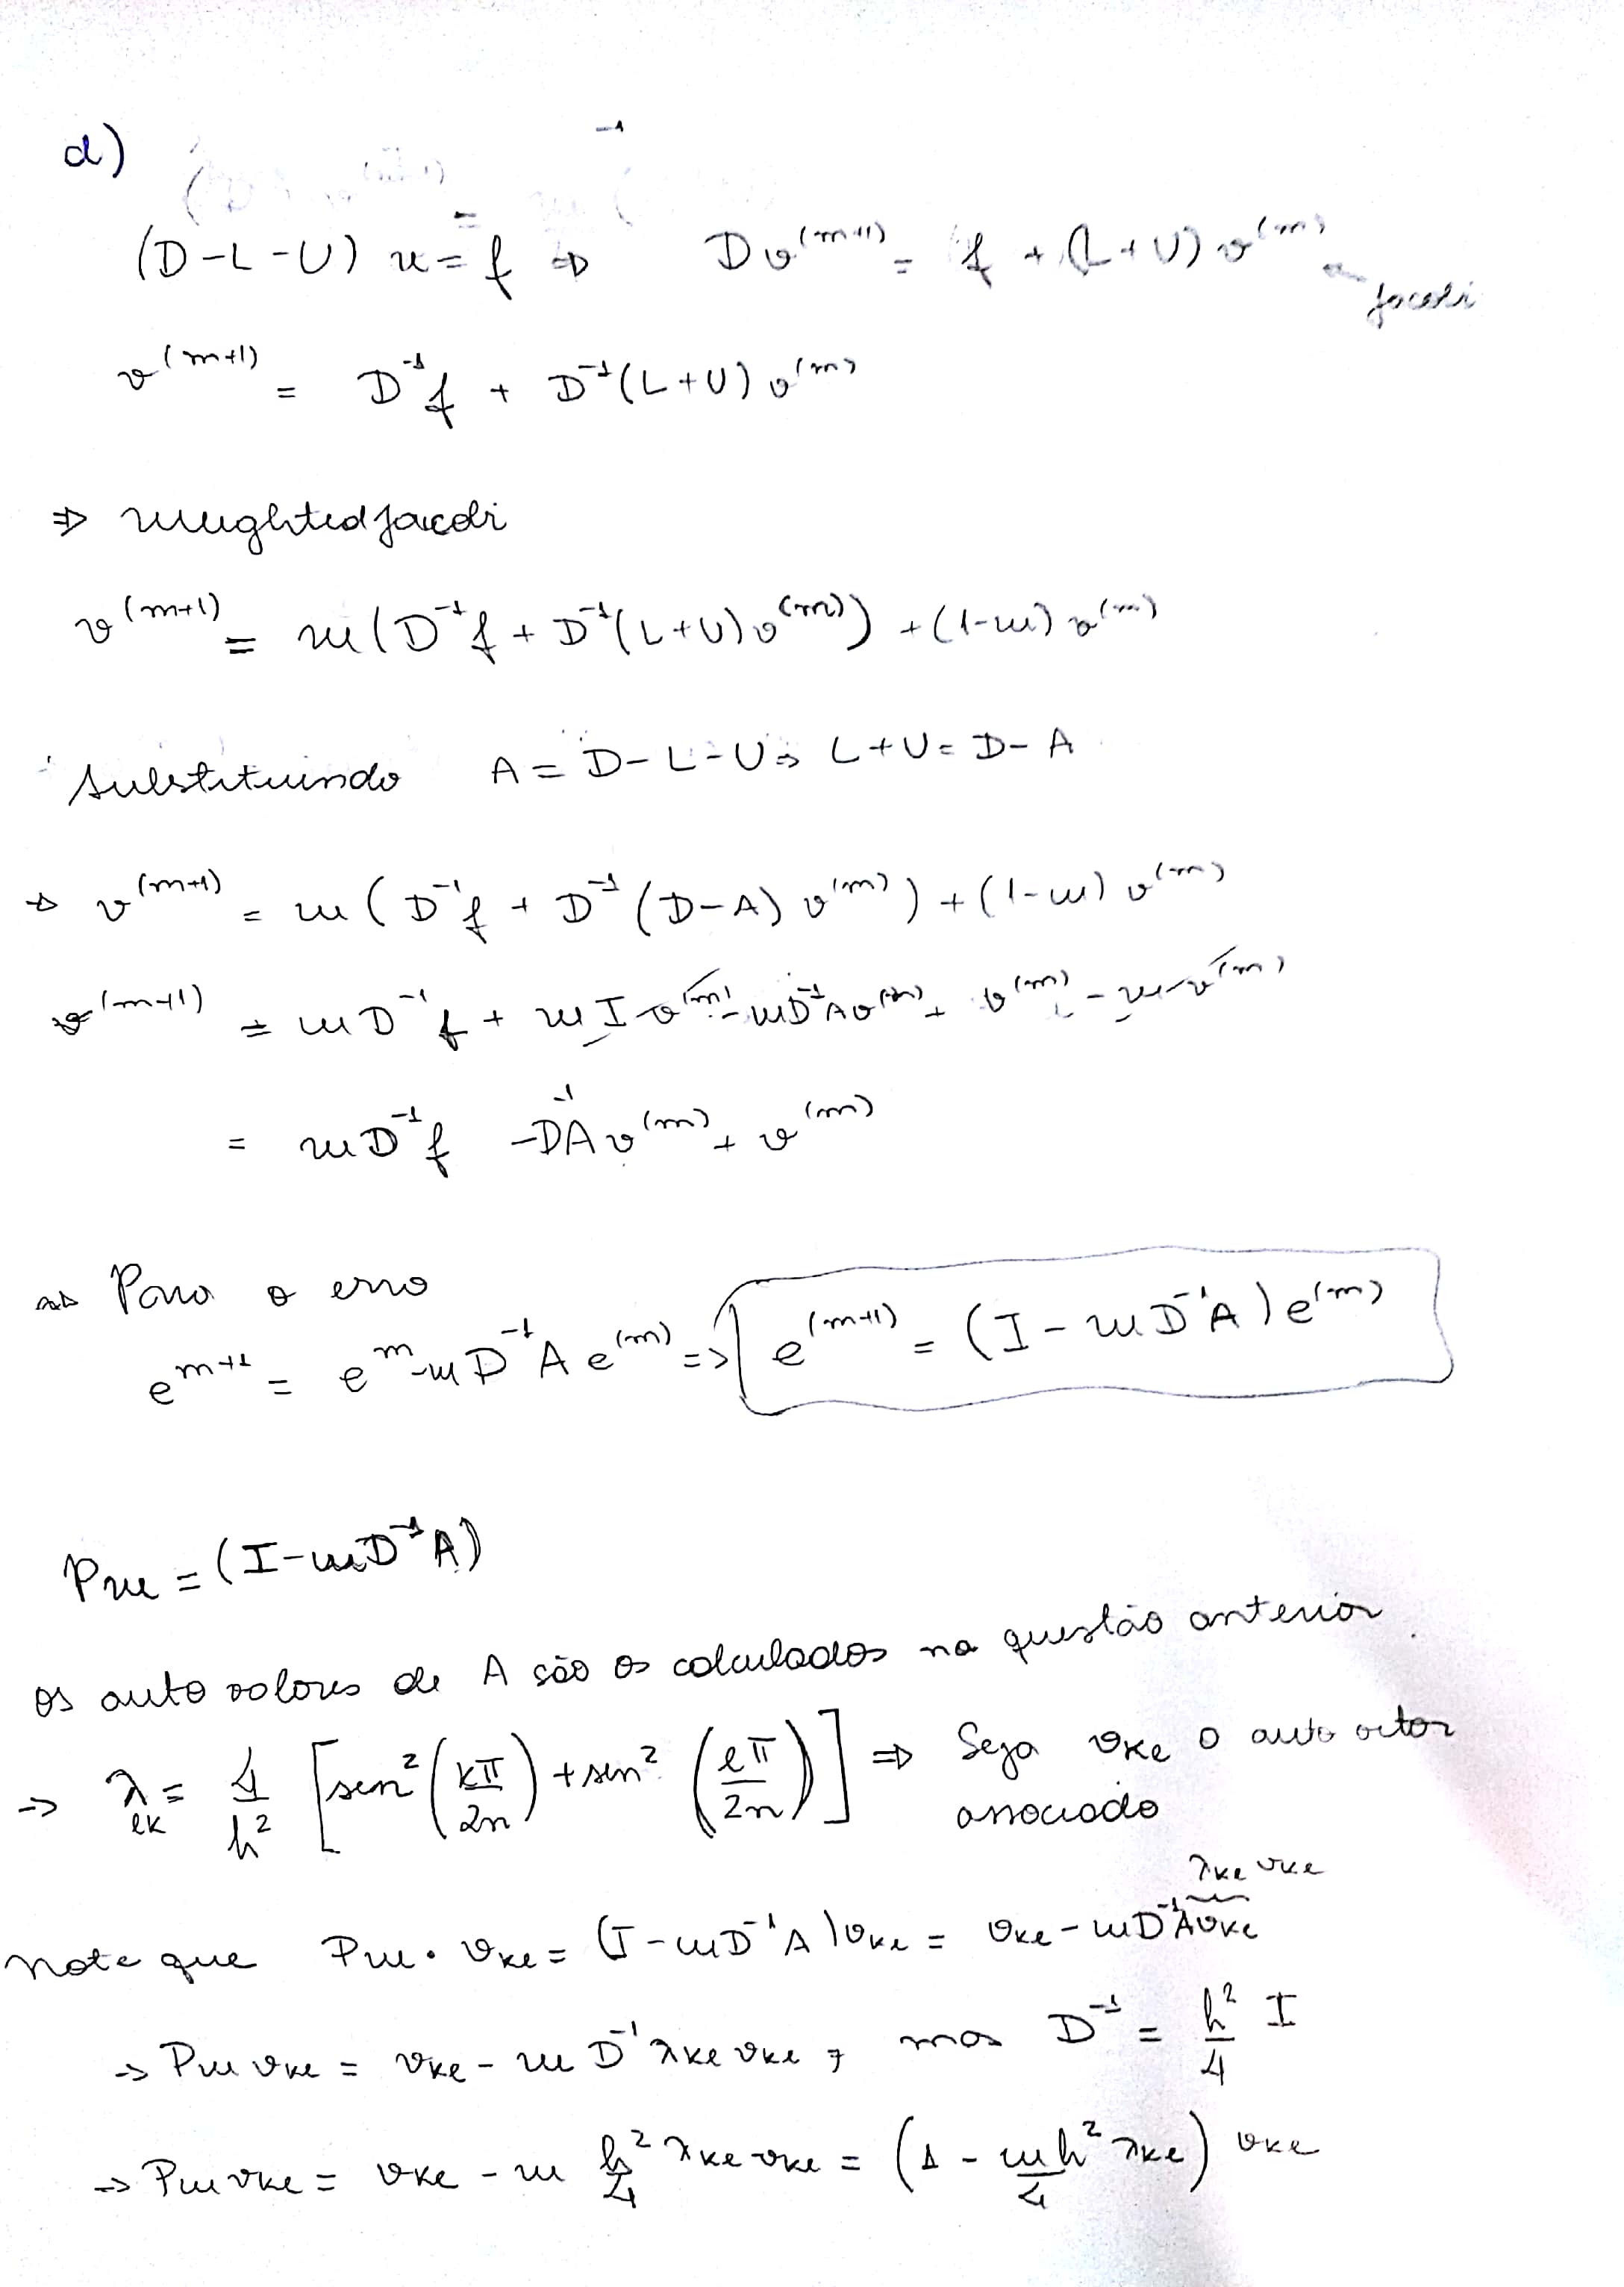 d)
(D-L-U) u = f ⇒ D v^(m+1) = f + (L+U) v^(m)
Jacobi
v^(m+1) = D^-1 f + D^-1 (L+U) v^(m)
⇒ weighted jacobi
v^(m+1) = w(D^-1 f + D^-1 (L+U) v^(m)) + (1-w) v^(m)
Substituindo A = D-L-U ⇒ L+U = D-A
⇒ v^(m+1) = w(D^-1 f + D^-1 (D-A) v^(m)) + (1-w) v^(m)
v^(m+1) = wD^-1 f + w I v^(m) - wD^-1 A v^(m) + v^(m) - w v^(m)
= wD^-1 f - D^-1 A v^(m) + v^(m)
⇒ Para o erro
e^m+1 = e^m - wD^-1 A e^(m) => e^(m+1) = (I - wD^-1 A) e^(m)
Pw = (I - wD^-1 A)
Os auto valores de A são os calculados na questão anterior.
→ λ_lk = 4/h^2 [sen^2(kπ/2n) + sen^2(lπ/2n)] ⇒ Seja v_kl o auto vetor
associado
λ_kl v_kl
Note que Pw · v_kl = (I - wD^-1 A) v_kl = v_kl - wD^-1 A v_kl
→ Pw v_kl = v_kl - w D^-1 λ_kl v_kl, mas D^-1 = h^2/4 I
→ Pw v_kl = v_kl - w h^2/4 λ_kl v_kl = (1 - wh^2/4 λ_kl) v_kl